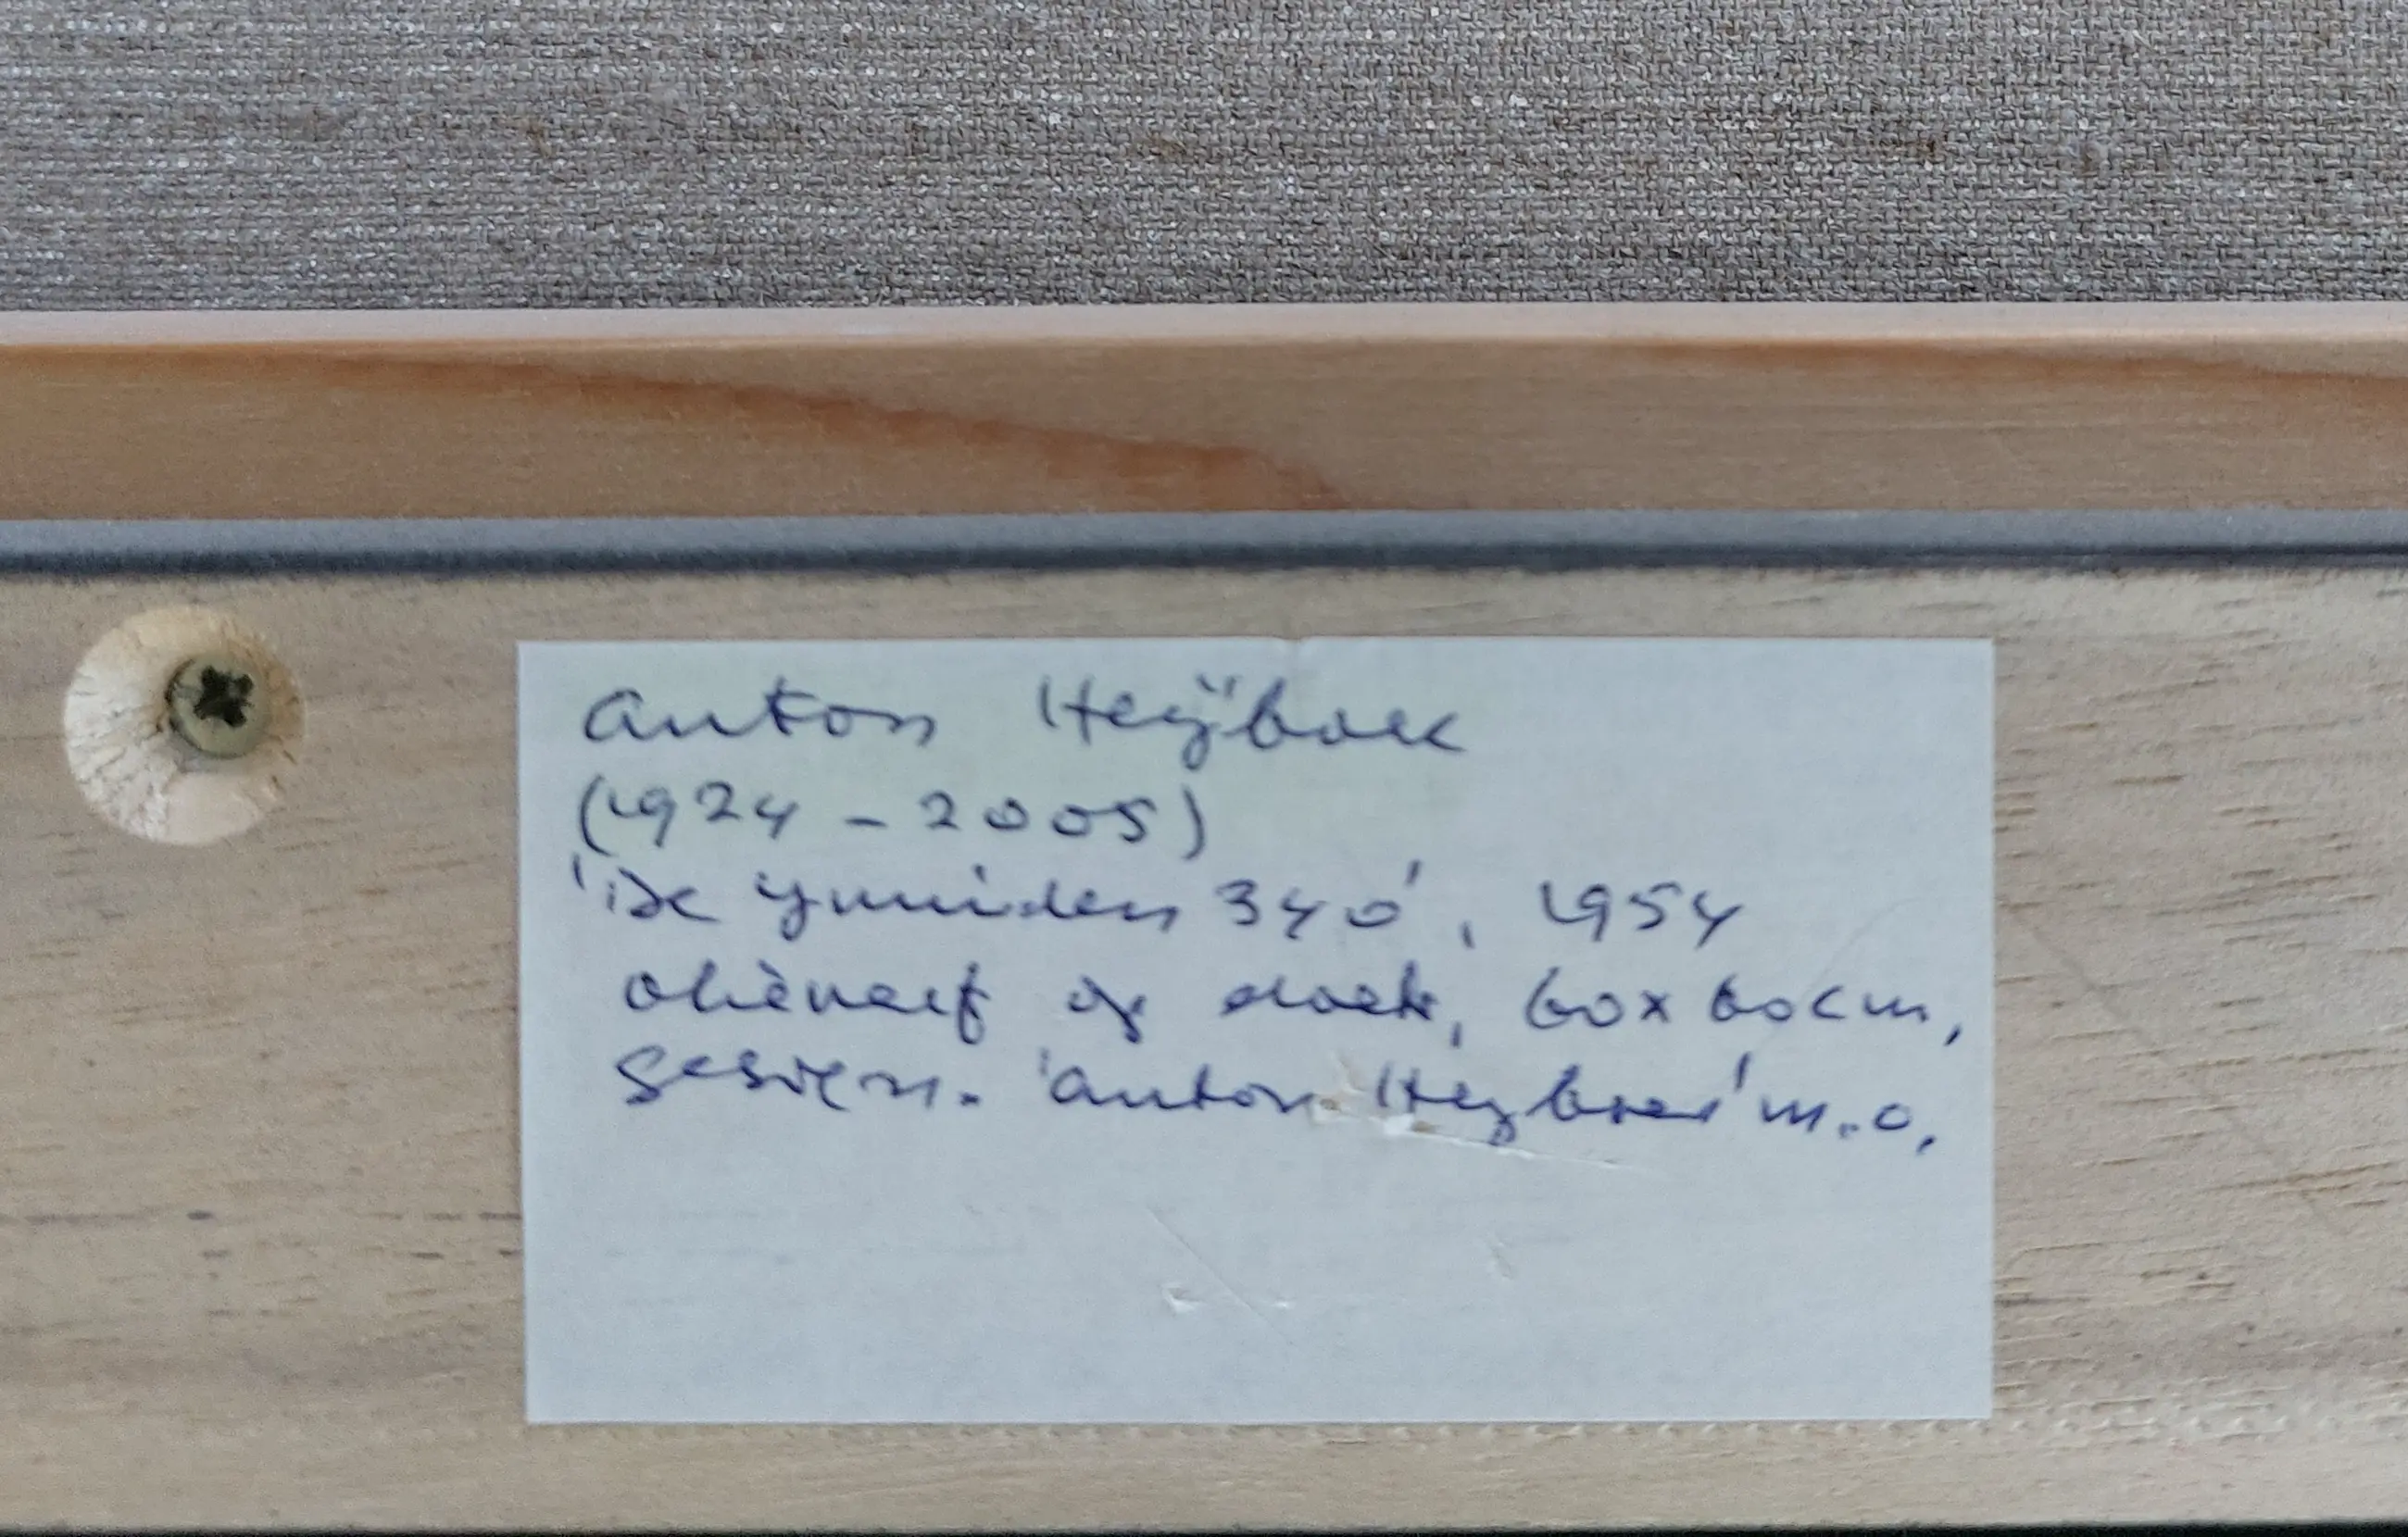 Anton Heÿboer
(1924 - 2005)
'De Ymuiden 340', 1954
olièverf op doek, 60 x 60 cm,
gesign. 'Anton Heyboer' m.o.